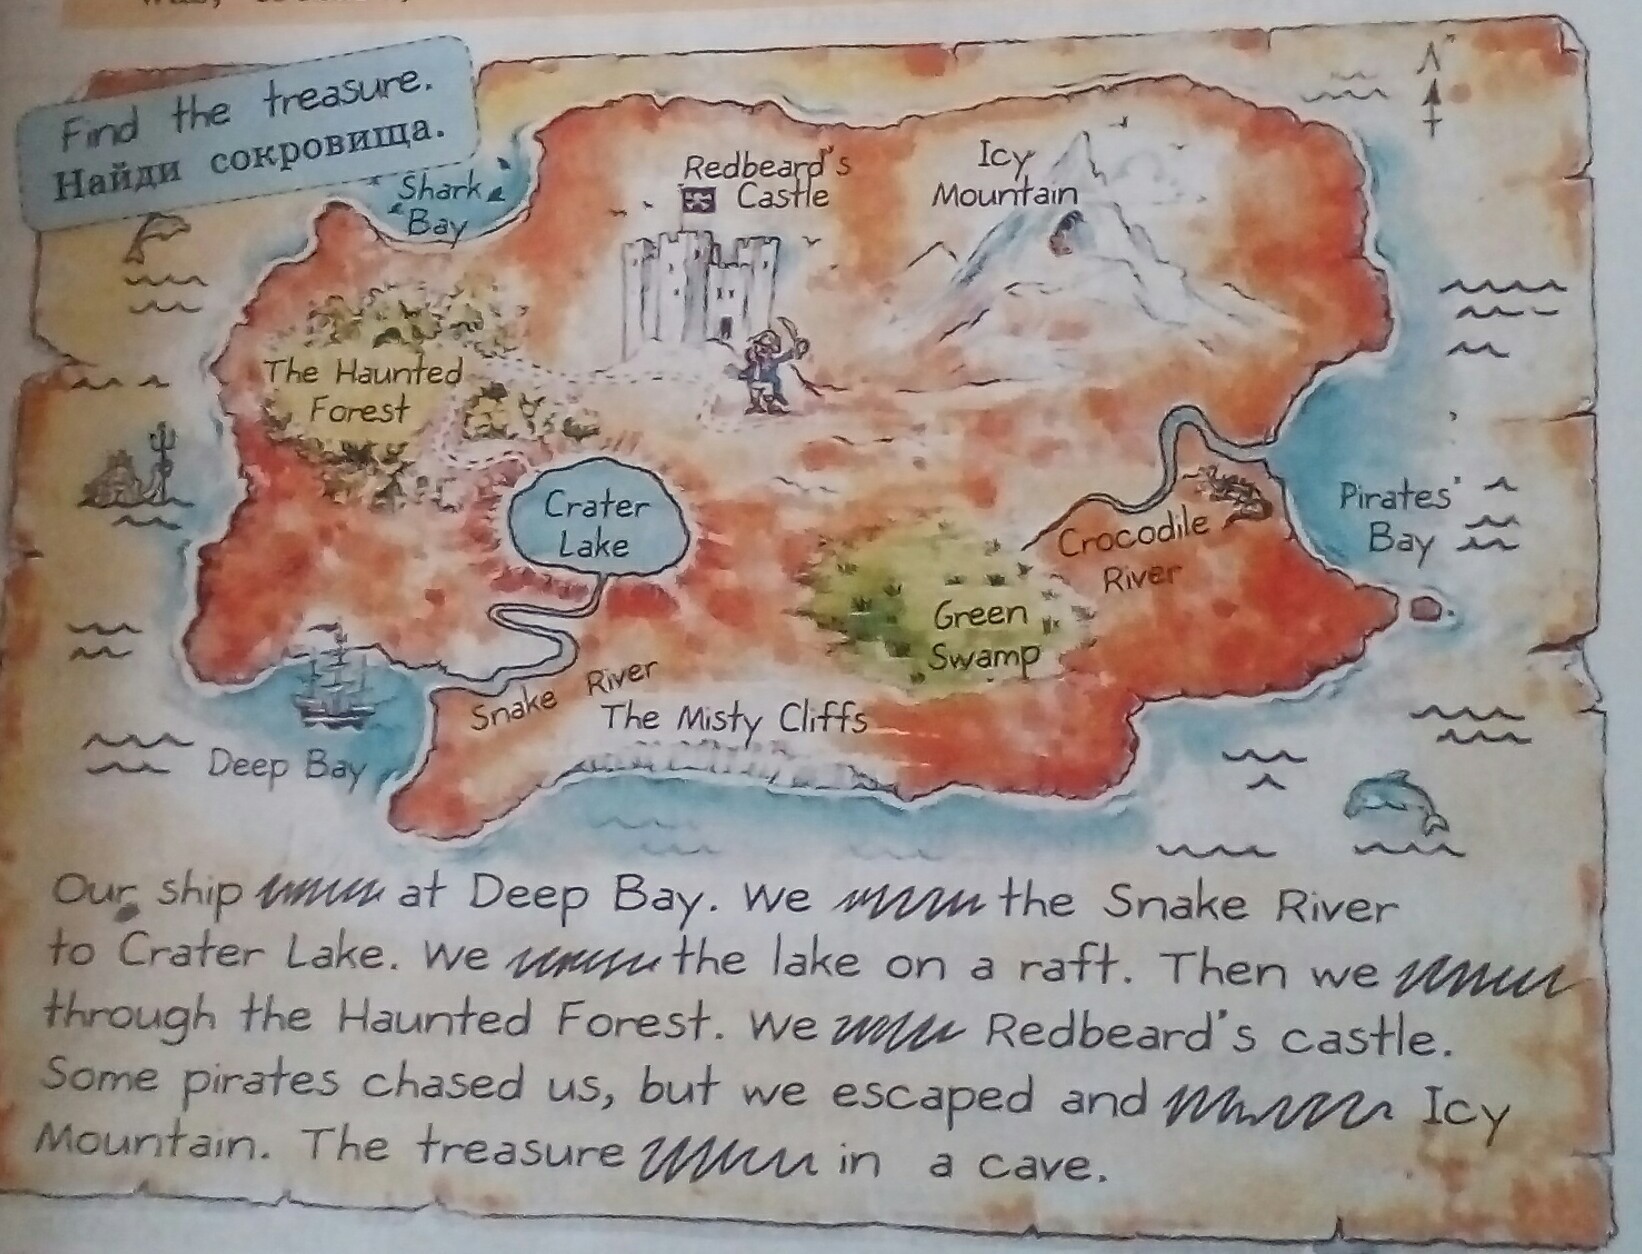 Find the treasure.
Найди сокровища.
Shark
Bay
Redbeard's
Castle
Icy
Mountain
The Haunted
Forest
Crater
Lake
Pirates'
Bay
Crocodile
River
Green
Swamp
Snake River
The Misty Cliffs
Deep Bay
Our ship at Deep Bay. We the Snake River
to Crater Lake. We the lake on a raft. Then we
through the Haunted Forest. We Redbeard's castle.
Some pirates chased us, but we escaped and Icy
Mountain. The treasure in a cave.